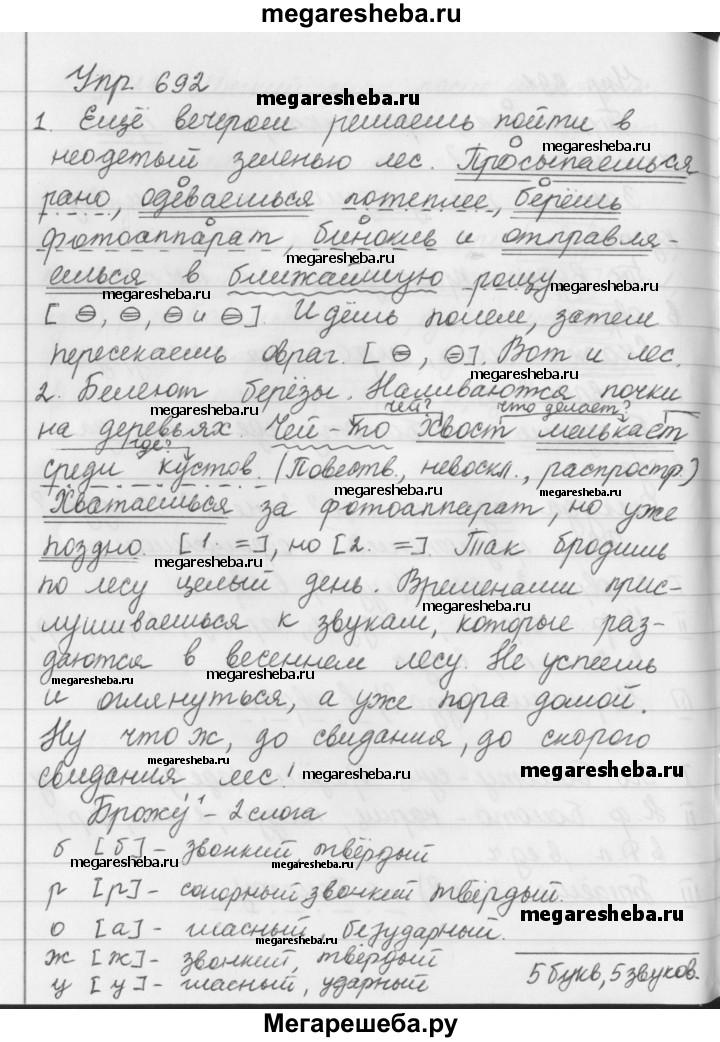 megaresheba.ru
Упр. 692
megaresheba.ru
1. Ещё вечером решаешь пойти в
megaresheba.ru
неодетый зеленью лес. Просыпаешься
megaresheba.ru
рано, одеваешься потеплее, берёшь
megaresheba.ru
фотоаппарат, бинокль и отправля-
megaresheba.ru
ешься в ближайшую рощу
megaresheba.ru
megaresheba.ru
[⊖, ⊖, ⊖ и ⊖]. Идёшь полем, затем
megaresheba.ru
пересекаешь овраг. [⊖, ⊖]. Вот и лес.
2. Белеют берёзы. Наливаются почки
megaresheba.ru
чей? что делает?
на деревьях. Чей-то хвост мелькает
megaresheba.ru
где?
среди кустов. (Повеств., невоскл., распростр.)
megaresheba.ru
megaresheba.ru
Хватаешься за фотоаппарат, но уже
megaresheba.ru
поздно. [1. =], но [2. =]. Так бродишь
megaresheba.ru
по лесу целый день. Временами прис-
megaresheba.ru
лушиваешься к звукам, которые раз-
megaresheba.ru
даются в весеннем лесу. Не успеешь
megaresheba.ru
и оглянуться, а уже пора домой.
megaresheba.ru
Ну что ж, до свидания, до скорого
megaresheba.ru
свидания, лес!
megaresheba.ru
megaresheba.ru
Брожу¹ - 2 слога
megaresheba.ru
б [б] - звонкий твёрдый
megaresheba.ru
megaresheba.ru
р [р] - сонорный звонкий твёрдый.
megaresheba.ru
о [а] - гласный, безударный.
megaresheba.ru
ж [ж] - звонкий, твёрдый
у [у] - гласный, ударный
5 букв, 5 звуков.
megaresheba.ru
Мегарешеба.ру